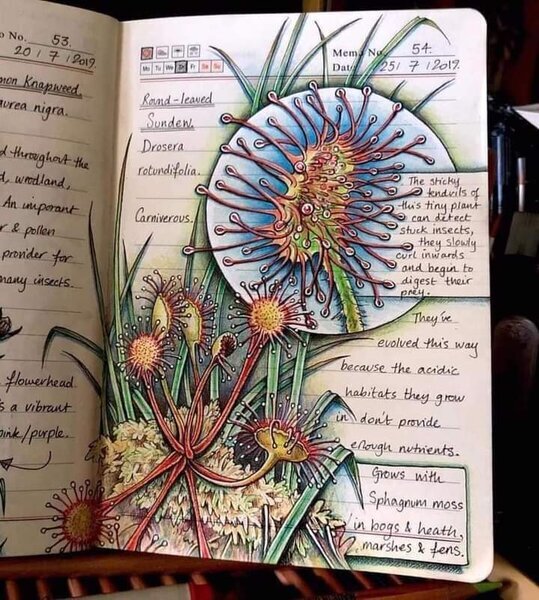 No.
53.
20 / 7 / 2019.
mon Knapweed.
aurea nigra.
d throughout the
d, wodland,
An imporant
r & pollen
provider for
many insects.
flowerhead
s a vibrant
pink/purple.
Memo No.
54.
Date
25 / 7 / 2019.
Mo Tu We Fr Sa Su
Round-leaved
Sundew.
Drosera
rotundifolia.
Carniverous.
The sticky
tendrils of
this tiny plant
can detect
stuck insects,
they slowly
curl inwards
and begin to
digest their
prey.
They've
evolved this way
because the acidic
habitats they grow
in don't provide
enough nutrients.
Grows with
Sphagnum moss
in bogs & heath,
marshes & fens.